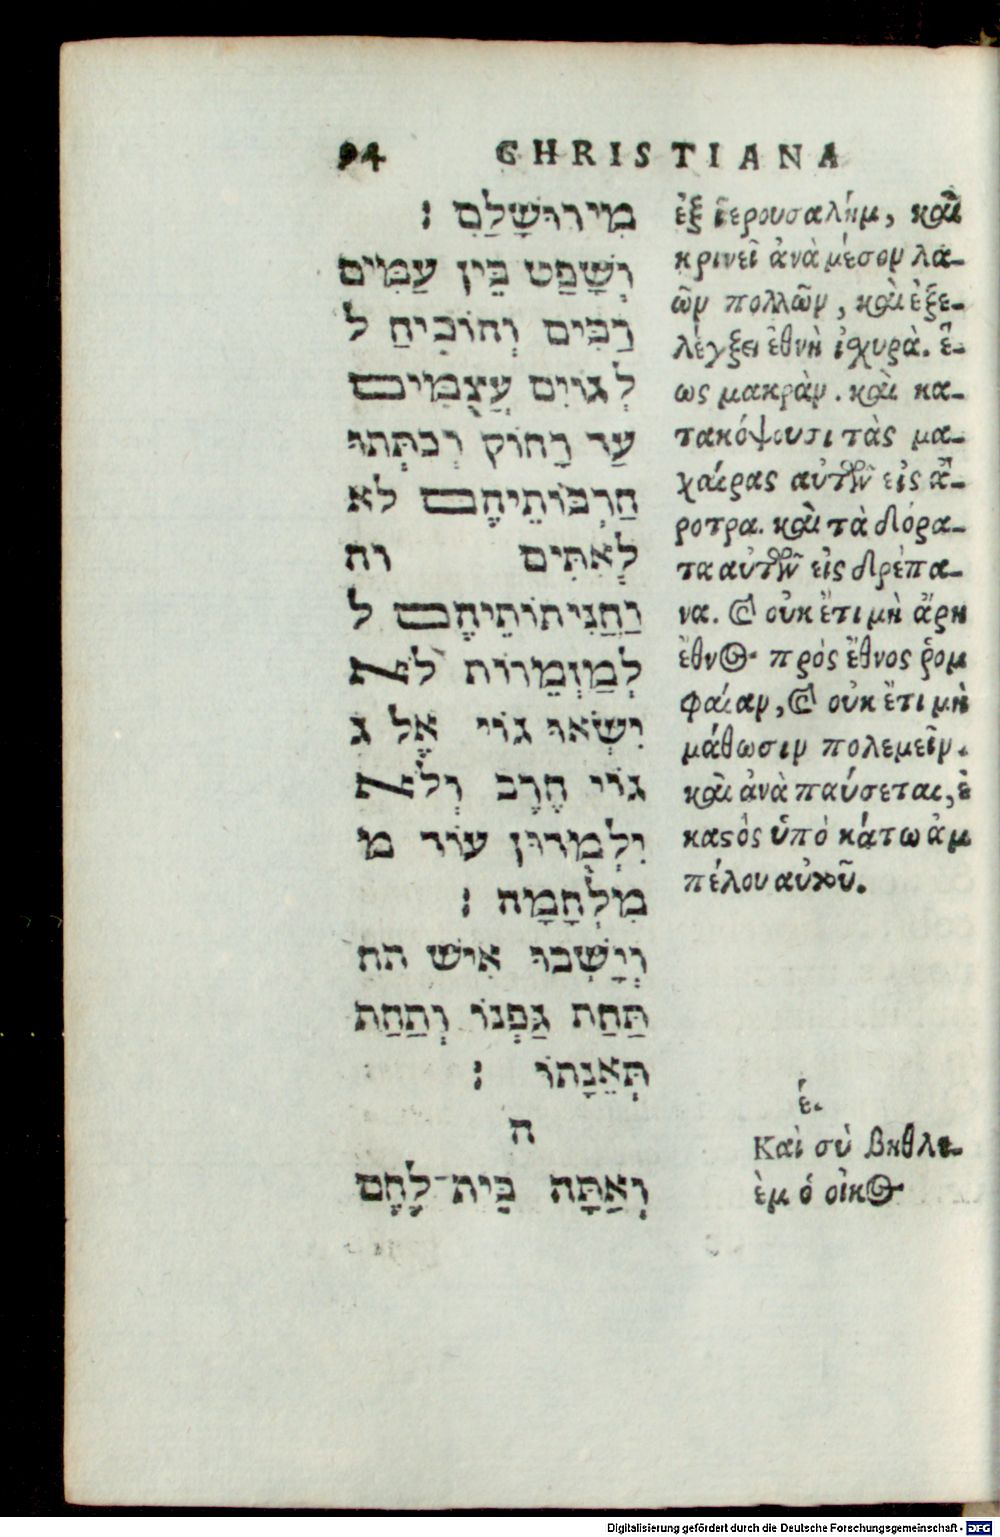 94 CHRISTIANA
מִירוּשָׁלַםִ :
וְשָׁפַט בֵּין עַמִּים
רַבִּים וְהוֹכִיחַ ל
לְגוֹיִם עֲצֻמִים
עַד רָחוֹק וְכִתְּתוּ
חַרְבוֹתֵיהֶם לא
לְאִתִּים וח
וַחֲנִיתוֹתֵיהֶם ל
לְמַזְמֵרוֹת לֹא
יִשְׂאוּ גוֹי אֶל ג
גּוֹי חֶרֶב וְלֹא
יִלְמְדוּן עוֹד מ
מִלְחָמָה :
וְיָשְׁבוּ אִישׁ תח
תַּחַת גַּפְנוֹ וְתַחַת
תְּאֵנָתוֹ :
ה
וְאַתָּה בֵּית־לֶחֶם
ἐξ ἱερουσαλήμ, καὶ
κρινεῖ ἀνὰ μέσον λα-
ῶν πολλῶν, καὶ ἐξε-
λέγξει ἔθνη ἰσχυρὰ. ἕ-
ως μακρὰν. καὶ κα-
τακόψουσι τὰς μα-
χαίρας αὐτῶν εἰς ἄ-
ροτρα. καὶ τὰ δόρα-
τα αὐτῶν εἰς δρέπα-
να. καὶ οὐκ ἔτι μὴ ἄρῃ
ἔθνος πρὸς ἔθνος ῥομ
φαίαν, καὶ οὐκ ἔτι μὴ
μάθωσιν πολεμεῖν.
καὶ ἀνὰ παύσεται, ἑ
καστὸς ὑπὸ κάτω ἀμ
πέλου αὐτοῦ.
έ.
Καὶ σὺ βηθλε-
ὲμ ὁ οἶκος
Digitalisierung gefördert durch die Deutsche Forschungsgemeinschaft - DFG